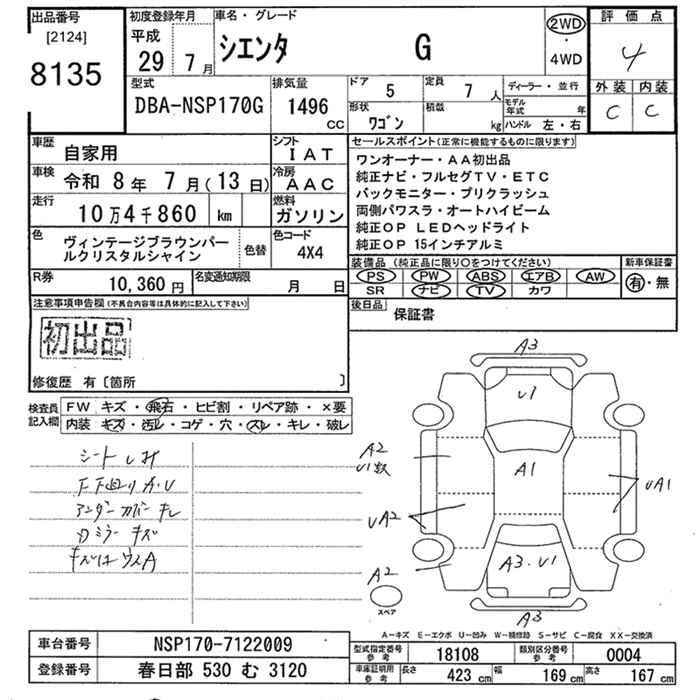 出品番号
[2124]
8135
初度登録年月
平成
29 7月
車名・グレード
シエンタ G
2WD
・
4WD
評価点
4
外装 内装
C C
型式
DBA-NSP170G
排気量
1496
CC
ドア
5
定員
7人
ディーラー・並行
形状
ワゴン
積載
kg
モデル年式 年
ハンドル 左・右
車歴
自家用
シフト
IAT
車検
令和 8年 7月(13日)
冷房
AAC
走行
10万4千860 km
燃料
ガソリン
色
ヴィンテージブラウンパー
ルクリスタルシャイン
色替
色コード
4X4
R券
10,360円
名変通知期限
月 日
セールスポイント(正常に機能するものに限ります)
ワンオーナー・AA初出品
純正ナビ・フルセグTV・ETC
バックモニター・プリクラッシュ
両側パワスラ・オートハイビーム
純正OP LEDヘッドライト
純正OP 15インチアルミ
装備品(純正品に限り○をつけてください)
PS PW ABS エアB AW
SR ナビ TV カワ
新車保証書
有・無
後日品
保証書
注意事項申告欄(不具合内容等は具体的に記入して下さい)
初出品
修復歴 有〔箇所 〕
検査員
記入欄
FW キズ・飛石・ヒビ割・リペア跡・×要
内装 キズ・汚レ・コゲ・穴・スレ・キレ・破レ
シートレオ
下廻り A.U
アンダーカバーキレ
Dミラーキズ
キズはウスA
A3
U1
A2
U1数
A1
UA1
UA2
A3・U1
A2
A3
スペア
A-キズ E-エクボ U-凹み W-補修跡 S-サビ C-腐食 XX-交換済
車台番号
NSP170-7122009
登録番号
春日部 530 む 3120
型式指定番号
参考
18108
類別区分番号
参考
0004
車庫証明用
参考
長さ 423 cm
幅 169 cm
高さ 167 cm